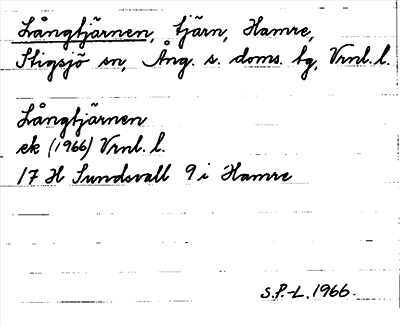 Långtjärnen, tjärn, Hamre,
Stigsjö sn, Ång. s. doms. tg, Vrnl. l.
Långtjärnen
ek (1966) Vrnl. l.
17 H Sundsvall 9 i Hamre
S.P.-L. 1966.